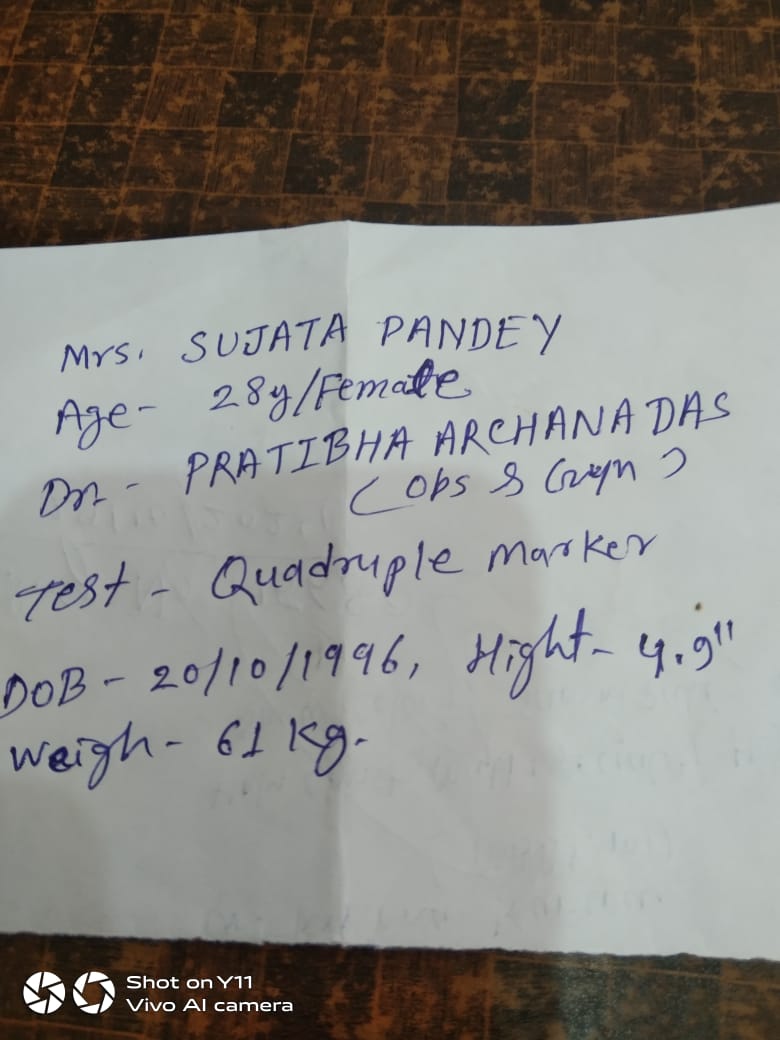 Mrs. SUJATA PANDEY
Age - 28y/Female
Dr. - PRATIBHA ARCHANA DAS
(Obs & Gyn)
Test - Quadruple Marker
DOB - 20/10/1996, Hight - 4.9"
Weigh - 61 kg.
Shot on Y11
Vivo AI camera